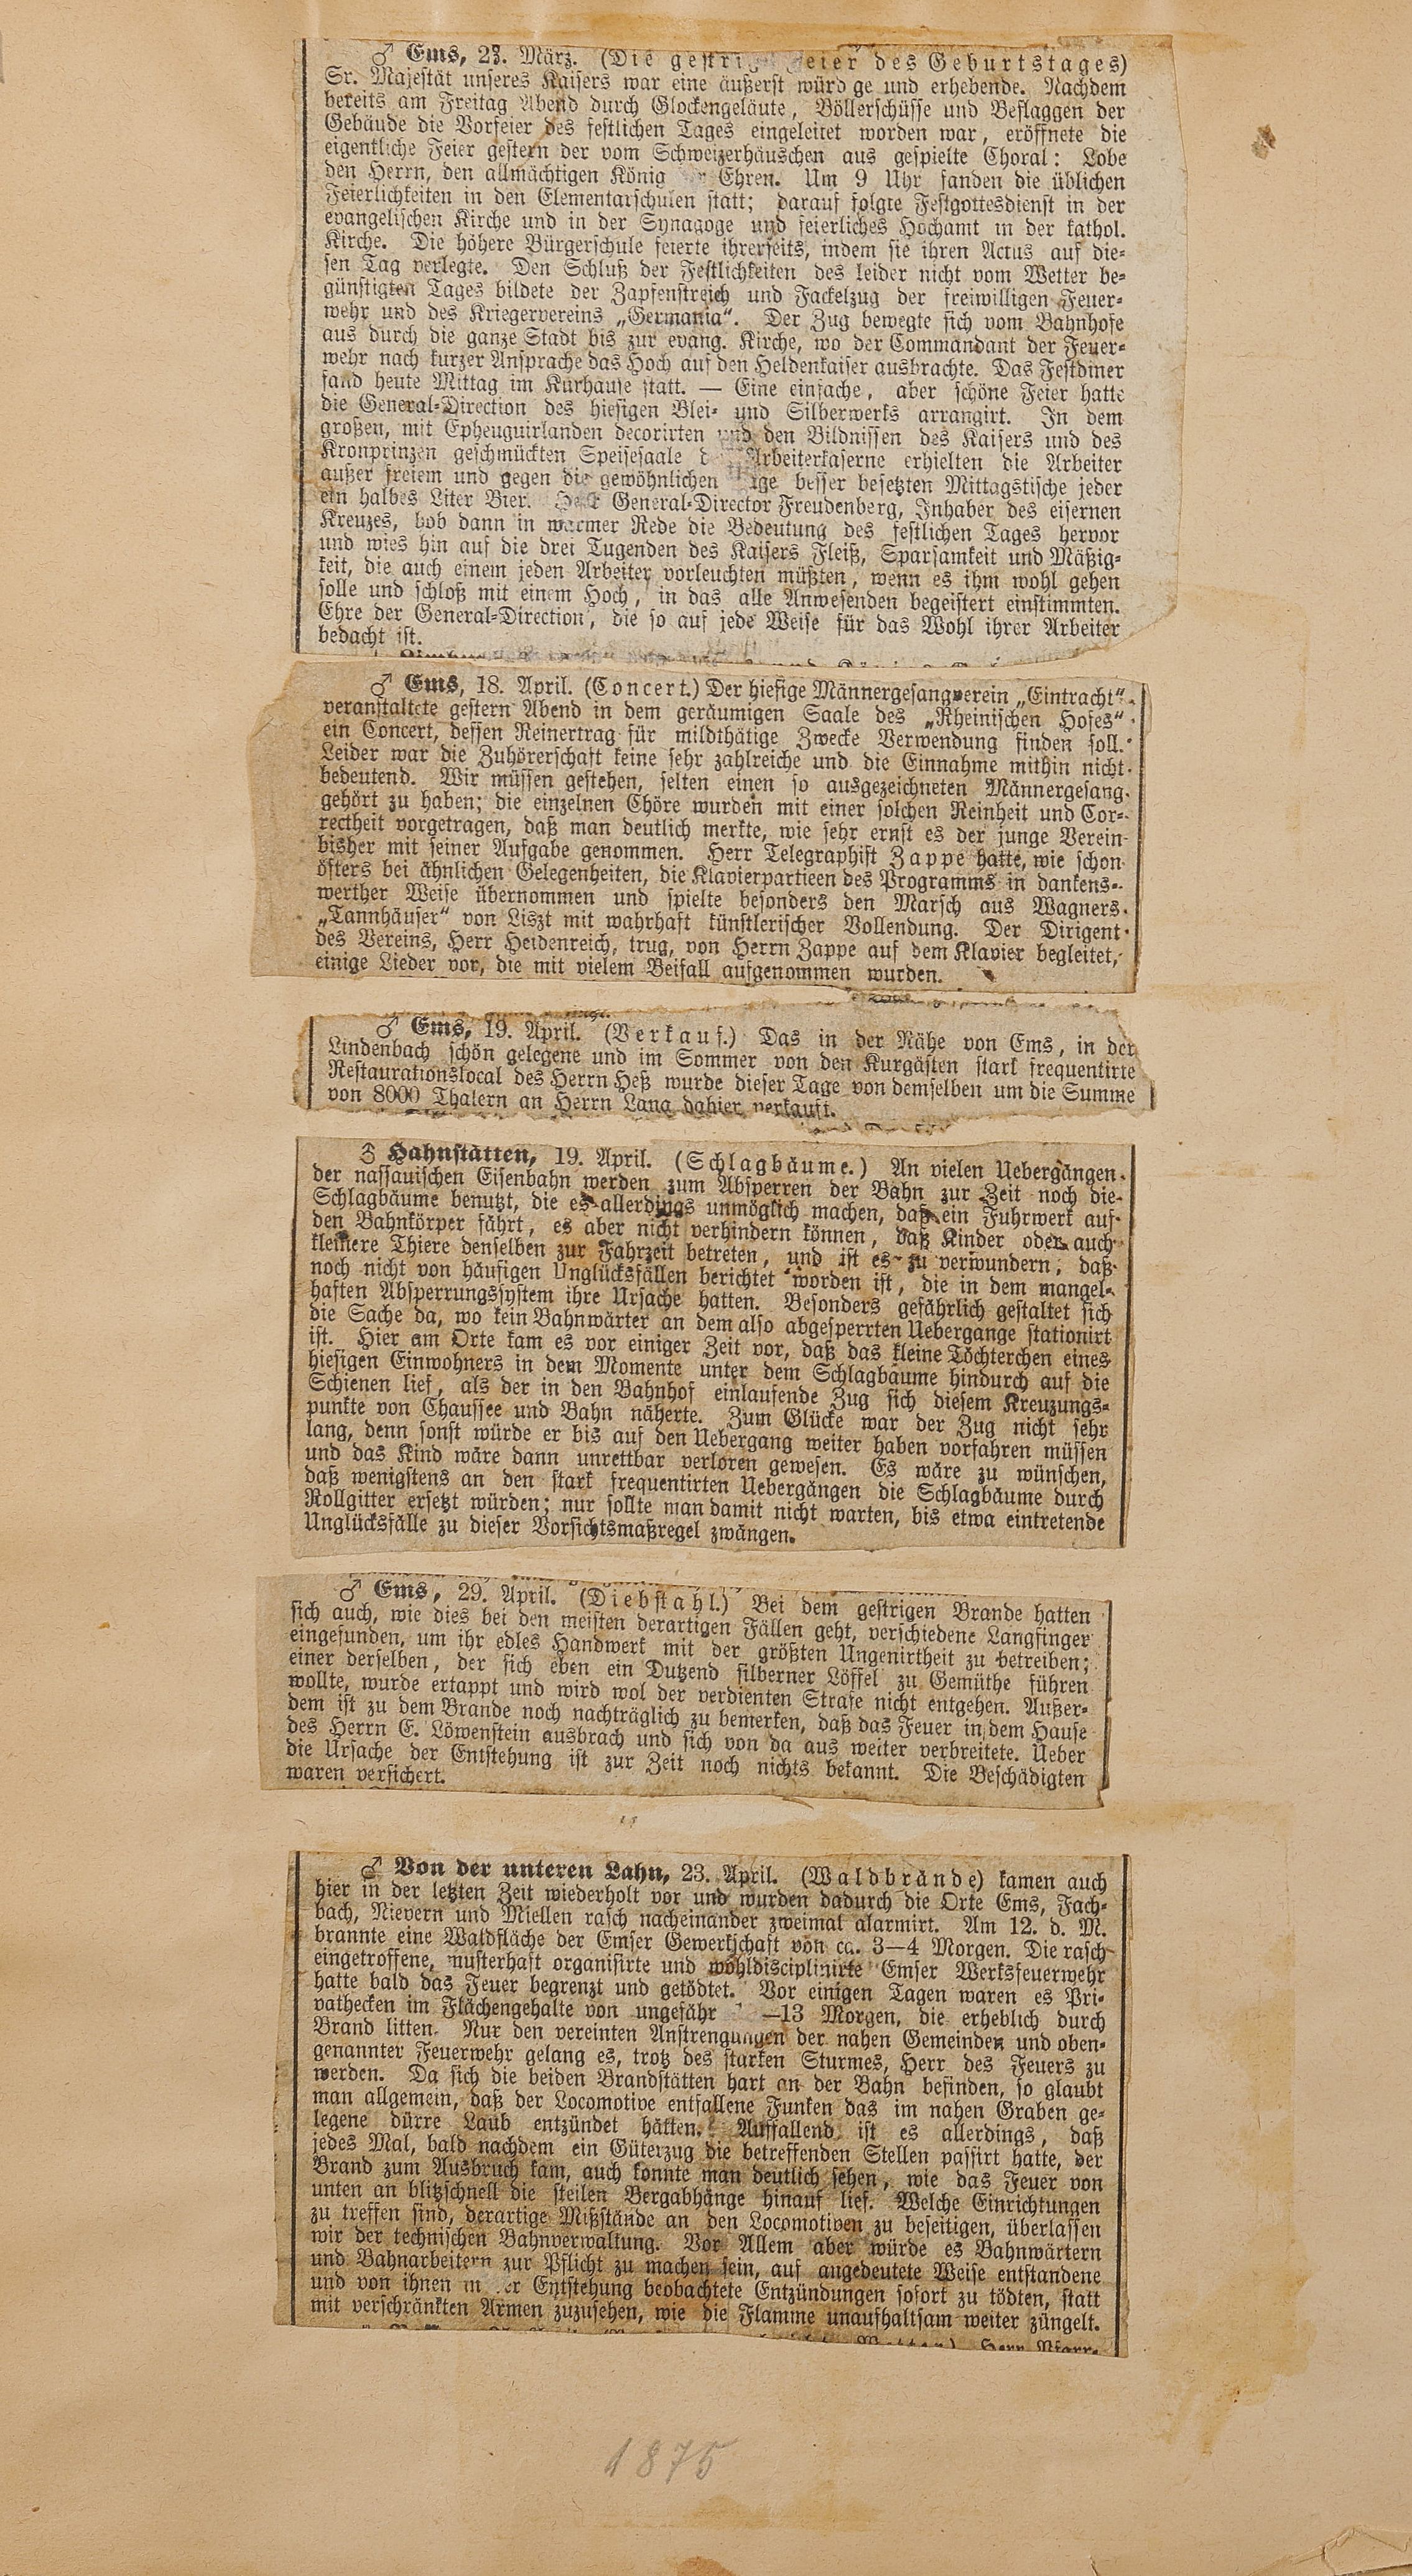 ♂ Ems, 23. März. (Die gestri eier des Geburtstages)
Sr. Majestät unseres Kaisers war eine äußerst würd ge und erhebende. Nachdem
bereits am Freitag Abend durch Glockengeläute, Böllerschüsse und Beflaggen der
Gebäude die Vorfeier des festlichen Tages eingeleitet worden war, eröffnete die
eigentliche Feier gestern der vom Schweizerhäuschen aus gespielte Choral: Lobe
den Herrn, den allmächtigen König r Ehren. Um 9 Uhr fanden die üblichen
Feierlichkeiten in den Elementarschulen statt; darauf folgte Festgottesdienst in der
evangelischen Kirche und in der Synagoge und feierliches Hochamt in der kathol.
Kirche. Die höhere Bürgerschule feierte ihrerseits, indem sie ihren Actus auf die-
sen Tag verlegte. Den Schluß der Festlichkeiten des leider nicht vom Wetter be-
günstigten Tages bildete der Zapfenstreich und Fackelzug der freiwilligen Feuer-
wehr und des Kriegervereins „Germania“. Der Zug bewegte sich vom Bahnhofe
aus durch die ganze Stadt bis zur evang. Kirche, wo der Commandant der Feuer-
wehr nach kurzer Ansprache das Hoch auf den Heldenkaiser ausbrachte. Das Festdiner
fand heute Mittag im Kurhause statt. — Eine einfache, aber schöne Feier hatte
die General-Direction des hiesigen Blei- und Silberwerks arrangirt. In dem
großen, mit Epheuguirlanden decorirten und den Bildnissen des Kaisers und des
Kronprinzen geschmückten Speisesaale d Arbeiterkaserne erhielten die Arbeiter
außer freiem und gegen die gewöhnlichen age besser besetzten Mittagstische jeder
ein halbes Liter Bier. Herr General-Director Freudenberg, Inhaber des eisernen
Kreuzes, hob dann in warmer Rede die Bedeutung des festlichen Tages hervor
und wies hin auf die drei Tugenden des Kaisers Fleiß, Sparsamkeit und Mäßig-
keit, die auch einem jeden Arbeiter vorleuchten müßten, wenn es ihm wohl gehen
solle und schloß mit einem Hoch, in das alle Anwesenden begeistert einstimmten.
Ehre der General-Direction, die so auf jede Weise für das Wohl ihrer Arbeiter
bedacht ist.
♂ Ems, 18. April. (Concert.) Der hiesige Männergesangverein „Eintracht“
veranstaltete gestern Abend in dem geräumigen Saale des „Rheinischen Hofes“
ein Concert, dessen Reinertrag für mildthätige Zwecke Verwendung finden soll.
Leider war die Zuhörerschaft keine sehr zahlreiche und die Einnahme mithin nicht
bedeutend. Wir müssen gestehen, selten einen so ausgezeichneten Männergesang
gehört zu haben; die einzelnen Chöre wurden mit einer solchen Reinheit und Cor-
rectheit vorgetragen, daß man deutlich merkte, wie sehr ernst es der junge Verein
bisher mit seiner Aufgabe genommen. Herr Telegraphist Zappe hatte, wie schon
öfters bei ähnlichen Gelegenheiten, die Klavierpartieen des Programms in dankens-
werther Weise übernommen und spielte besonders den Marsch aus Wagners
„Tannhäuser“ von Liszt mit wahrhaft künstlerischer Vollendung. Der Dirigent
des Vereins, Herr Heidenreich, trug, von Herrn Zappe auf dem Klavier begleitet,
einige Lieder vor, die mit vielem Beifall aufgenommen wurden.
♂ Ems, 19. April. (Verkauf.) Das in der Nähe von Ems, in der
Lindenbach schön gelegene und im Sommer von den Kurgästen stark frequentirte
Restaurationslocal des Herrn Heß wurde dieser Tage von demselben um die Summe
von 8000 Thalern an Herrn Lang dahier verkauft.
♂ Hahnstätten, 19. April. (Schlagbäume.) An vielen Uebergängen
der nassauischen Eisenbahn werden zum Absperren der Bahn zur Zeit noch die
Schlagbäume benutzt, die es allerdings unmöglich machen, daß ein Fuhrwerk auf
den Bahnkörper fährt, es aber nicht verhindern können, daß Kinder oder auch
kleinere Thiere denselben zur Fahrzeit betreten, und ist es zu verwundern, daß
noch nicht von häufigen Unglücksfällen berichtet worden ist, die in dem mangel-
haften Absperrungssystem ihre Ursache hatten. Besonders gefährlich gestaltet sich
die Sache da, wo kein Bahnwärter an dem also abgesperrten Uebergange stationirt
ist. Hier am Orte kam es vor einiger Zeit vor, daß das kleine Töchterchen eines
hiesigen Einwohners in dem Momente unter dem Schlagbaume hindurch auf die
Schienen lief, als der in den Bahnhof einlaufende Zug sich diesem Kreuzungs-
punkte von Chaussee und Bahn näherte. Zum Glücke war der Zug nicht sehr
lang, denn sonst würde er bis auf den Uebergang weiter haben vorfahren müssen
und das Kind wäre dann unrettbar verloren gewesen. Es wäre zu wünschen,
daß wenigstens an den stark frequentirten Uebergängen die Schlagbäume durch
Rollgitter ersetzt würden; nur sollte man damit nicht warten, bis etwa eintretende
Unglücksfälle zu dieser Vorsichtsmaßregel zwängen.
♂ Ems, 29. April. (Diebstahl.) Bei dem gestrigen Brande hatten
sich auch, wie dies bei den meisten derartigen Fällen geht, verschiedene Langfinger
eingefunden, um ihr edles Handwerk mit der größten Ungenirtheit zu betreiben;
einer derselben, der sich eben ein Dutzend silberner Löffel zu Gemüthe führen
wollte, wurde ertappt und wird wol der verdienten Strafe nicht entgehen. Außer-
dem ist zu dem Brande noch nachträglich zu bemerken, daß das Feuer in dem Hause
des Herrn E. Löwenstein ausbrach und sich von da aus weiter verbreitete. Ueber
die Ursache der Entstehung ist zur Zeit noch nichts bekannt. Die Beschädigten
waren versichert.
♂ Von der unteren Lahn, 23. April. (Waldbrände) kamen auch
hier in der letzten Zeit wiederholt vor und wurden dadurch die Orte Ems, Fach-
bach, Nievern und Miellen rasch nacheinander zweimal alarmirt. Am 12. d. M.
brannte eine Waldfläche der Emser Gewerkschaft von ca. 3—4 Morgen. Die rasch
eingetroffene, musterhaft organisirte und wohldisciplinirte Emser Werksfeuerwehr
hatte bald das Feuer begrenzt und getödtet. Vor einigen Tagen waren es Pri-
vathecken im Flächengehalte von ungefähr —13 Morgen, die erheblich durch
Brand litten. Nur den vereinten Anstrengungen der nahen Gemeinden und oben-
genannter Feuerwehr gelang es, trotz des starken Sturmes, Herr des Feuers zu
werden. Da sich die beiden Brandstätten hart an der Bahn befinden, so glaubt
man allgemein, daß der Locomotive entfallene Funken das im nahen Graben ge-
legene dürre Laub entzündet hätten. Auffallend ist es allerdings, daß
jedes Mal, bald nachdem ein Güterzug die betreffenden Stellen passirt hatte, der
Brand zum Ausbruch kam, auch konnte man deutlich sehen, wie das Feuer von
unten an blitzschnell die steilen Bergabhänge hinauf lief. Welche Einrichtungen
zu treffen sind, derartige Mißstände an den Locomotiven zu beseitigen, überlassen
wir der technischen Bahnverwaltung. Vor Allem aber würde es Bahnwärtern
und Bahnarbeitern zur Pflicht zu machen sein, auf angedeutete Weise entstandene
und von ihnen in er Entstehung beobachtete Entzündungen sofort zu tödten, statt
mit verschränkten Armen zuzusehen, wie die Flamme unaufhaltsam weiter züngelt.
Herr Pfarr-
1875